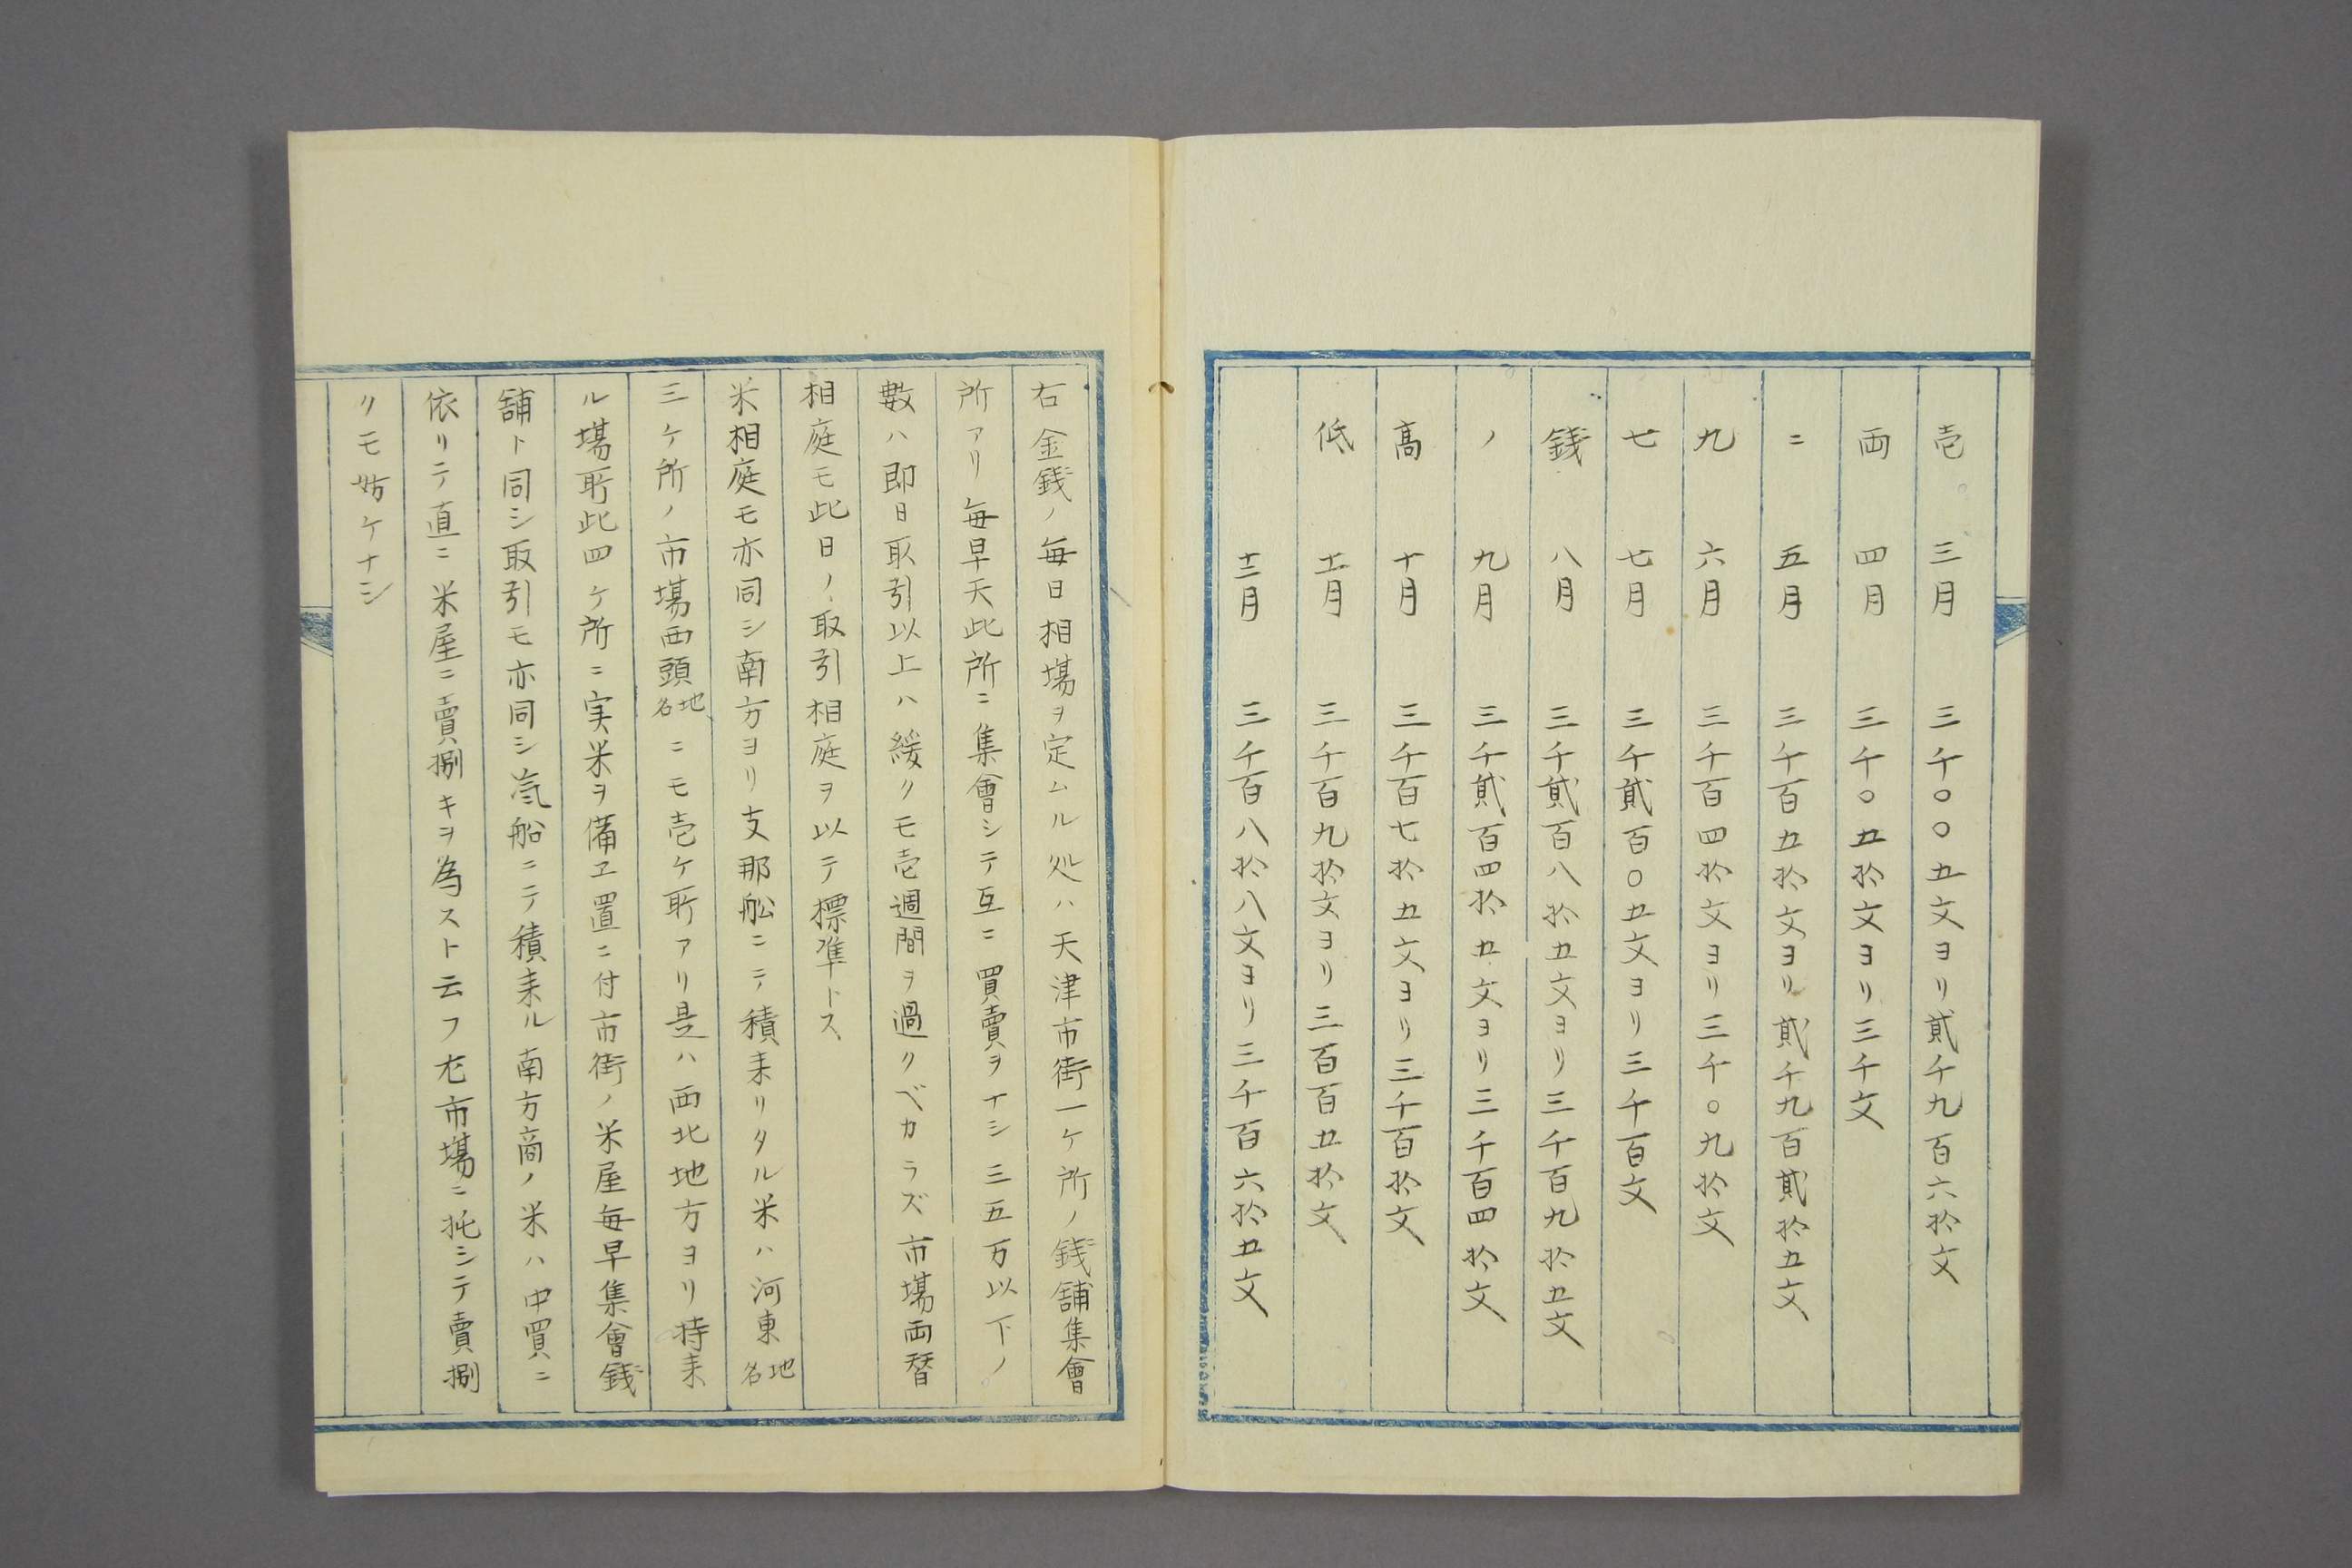 壱 三月 三千〇〇五文ヨリ貮千九百六拾文
両 四月 三千〇五拾文ヨリ三千文
ニ 五月 三千百五拾文ヨリ貮千九百貮拾五文
九 六月 三千百四拾文ヨリ三千〇九拾文
七 七月 三千貮百〇五文ヨリ三千百文
銭 八月 三千貮百八拾五文ヨリ三千百九拾五文
ノ 九月 三千貮百四拾五文ヨリ三千百四拾文
高 十月 三千百七拾五文ヨリ三千百拾文
低 十一月 三千百九拾文ヨリ三百百五拾文
十二月 三千百八拾八文ヨリ三千百六拾五文
右金銭ノ毎日相場ヲ定ムル処ハ天津市街一ケ所ノ銭舗集會
所アリ毎早天此所ニ集會シテ互ニ買賣ヲナシ三五万以下ノ
數ハ即日取引以上ハ緩クモ壱週間ヲ過クベカラズ市場両替
相庭モ此日ノ取引相庭ヲ以テ標準トス
米相庭モ亦同シ南方ヨリ支那舩ニテ積来リタル米ハ河東地名
三ケ所ノ市場西頭地名ニモ壱ケ所アリ是ハ西北地方ヨリ持来
ル場所此四ケ所ニ実米ヲ備ヱ置ニ付市街ノ米屋毎早集會銭
舗ト同シ取引モ亦同シ滊船ニテ積来ル南方商ノ米ハ中買ニ
依リテ直ニ米屋ニ賣捌キヲ為スト云フ尤市場ニ托シテ賣捌
クモ妨ケナシ